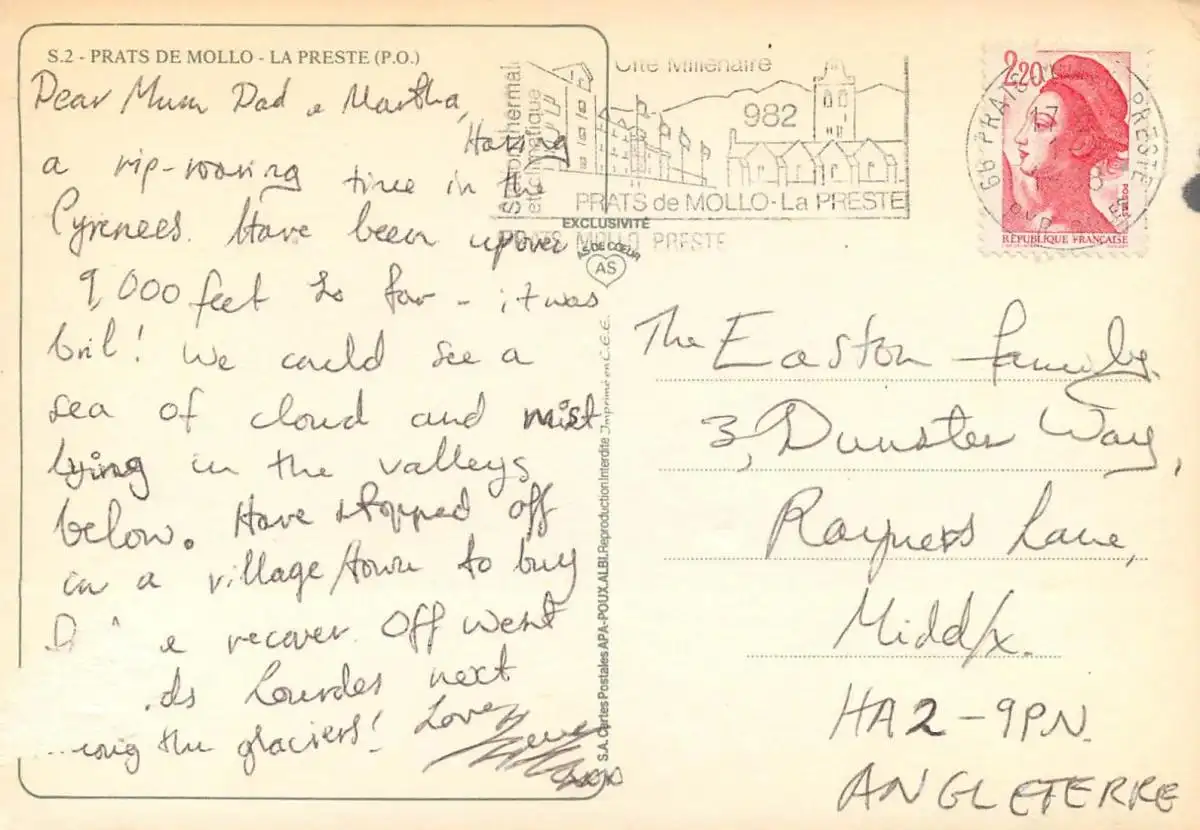 S.2 - PRATS DE MOLLO - LA PRESTE (P.O.)
Dear Mum Dad & Martha,
Having
a rip-roaring time in the
Pyrenees. Have been up over
9,000 feet so far - it was
bril! We could see a
sea of cloud and mist
lying in the valleys
below. Have stopped off
in a village/town to buy
& recover. Off went
Lourdes next
the glaciers! Love
xxx
Cité Millénaire
982
Station thermale
et climatique
PRATS de MOLLO-La PRESTE
PRATS MOLLO PRESTE
EXCLUSIVITÉ
AS DE CŒUR
AS
S.A. Cartes Postales APA-POUX. ALBI. Reproduction Interdite Imprimé en C.E.E.
2,20
RÉPUBLIQUE FRANÇAISE
POSTES
66 PRATS PRESTE
17
The Easton family,
3, Dunster Way,
Rayners Lane,
Midd/x.
HA2-9PN.
ANGLETERRE